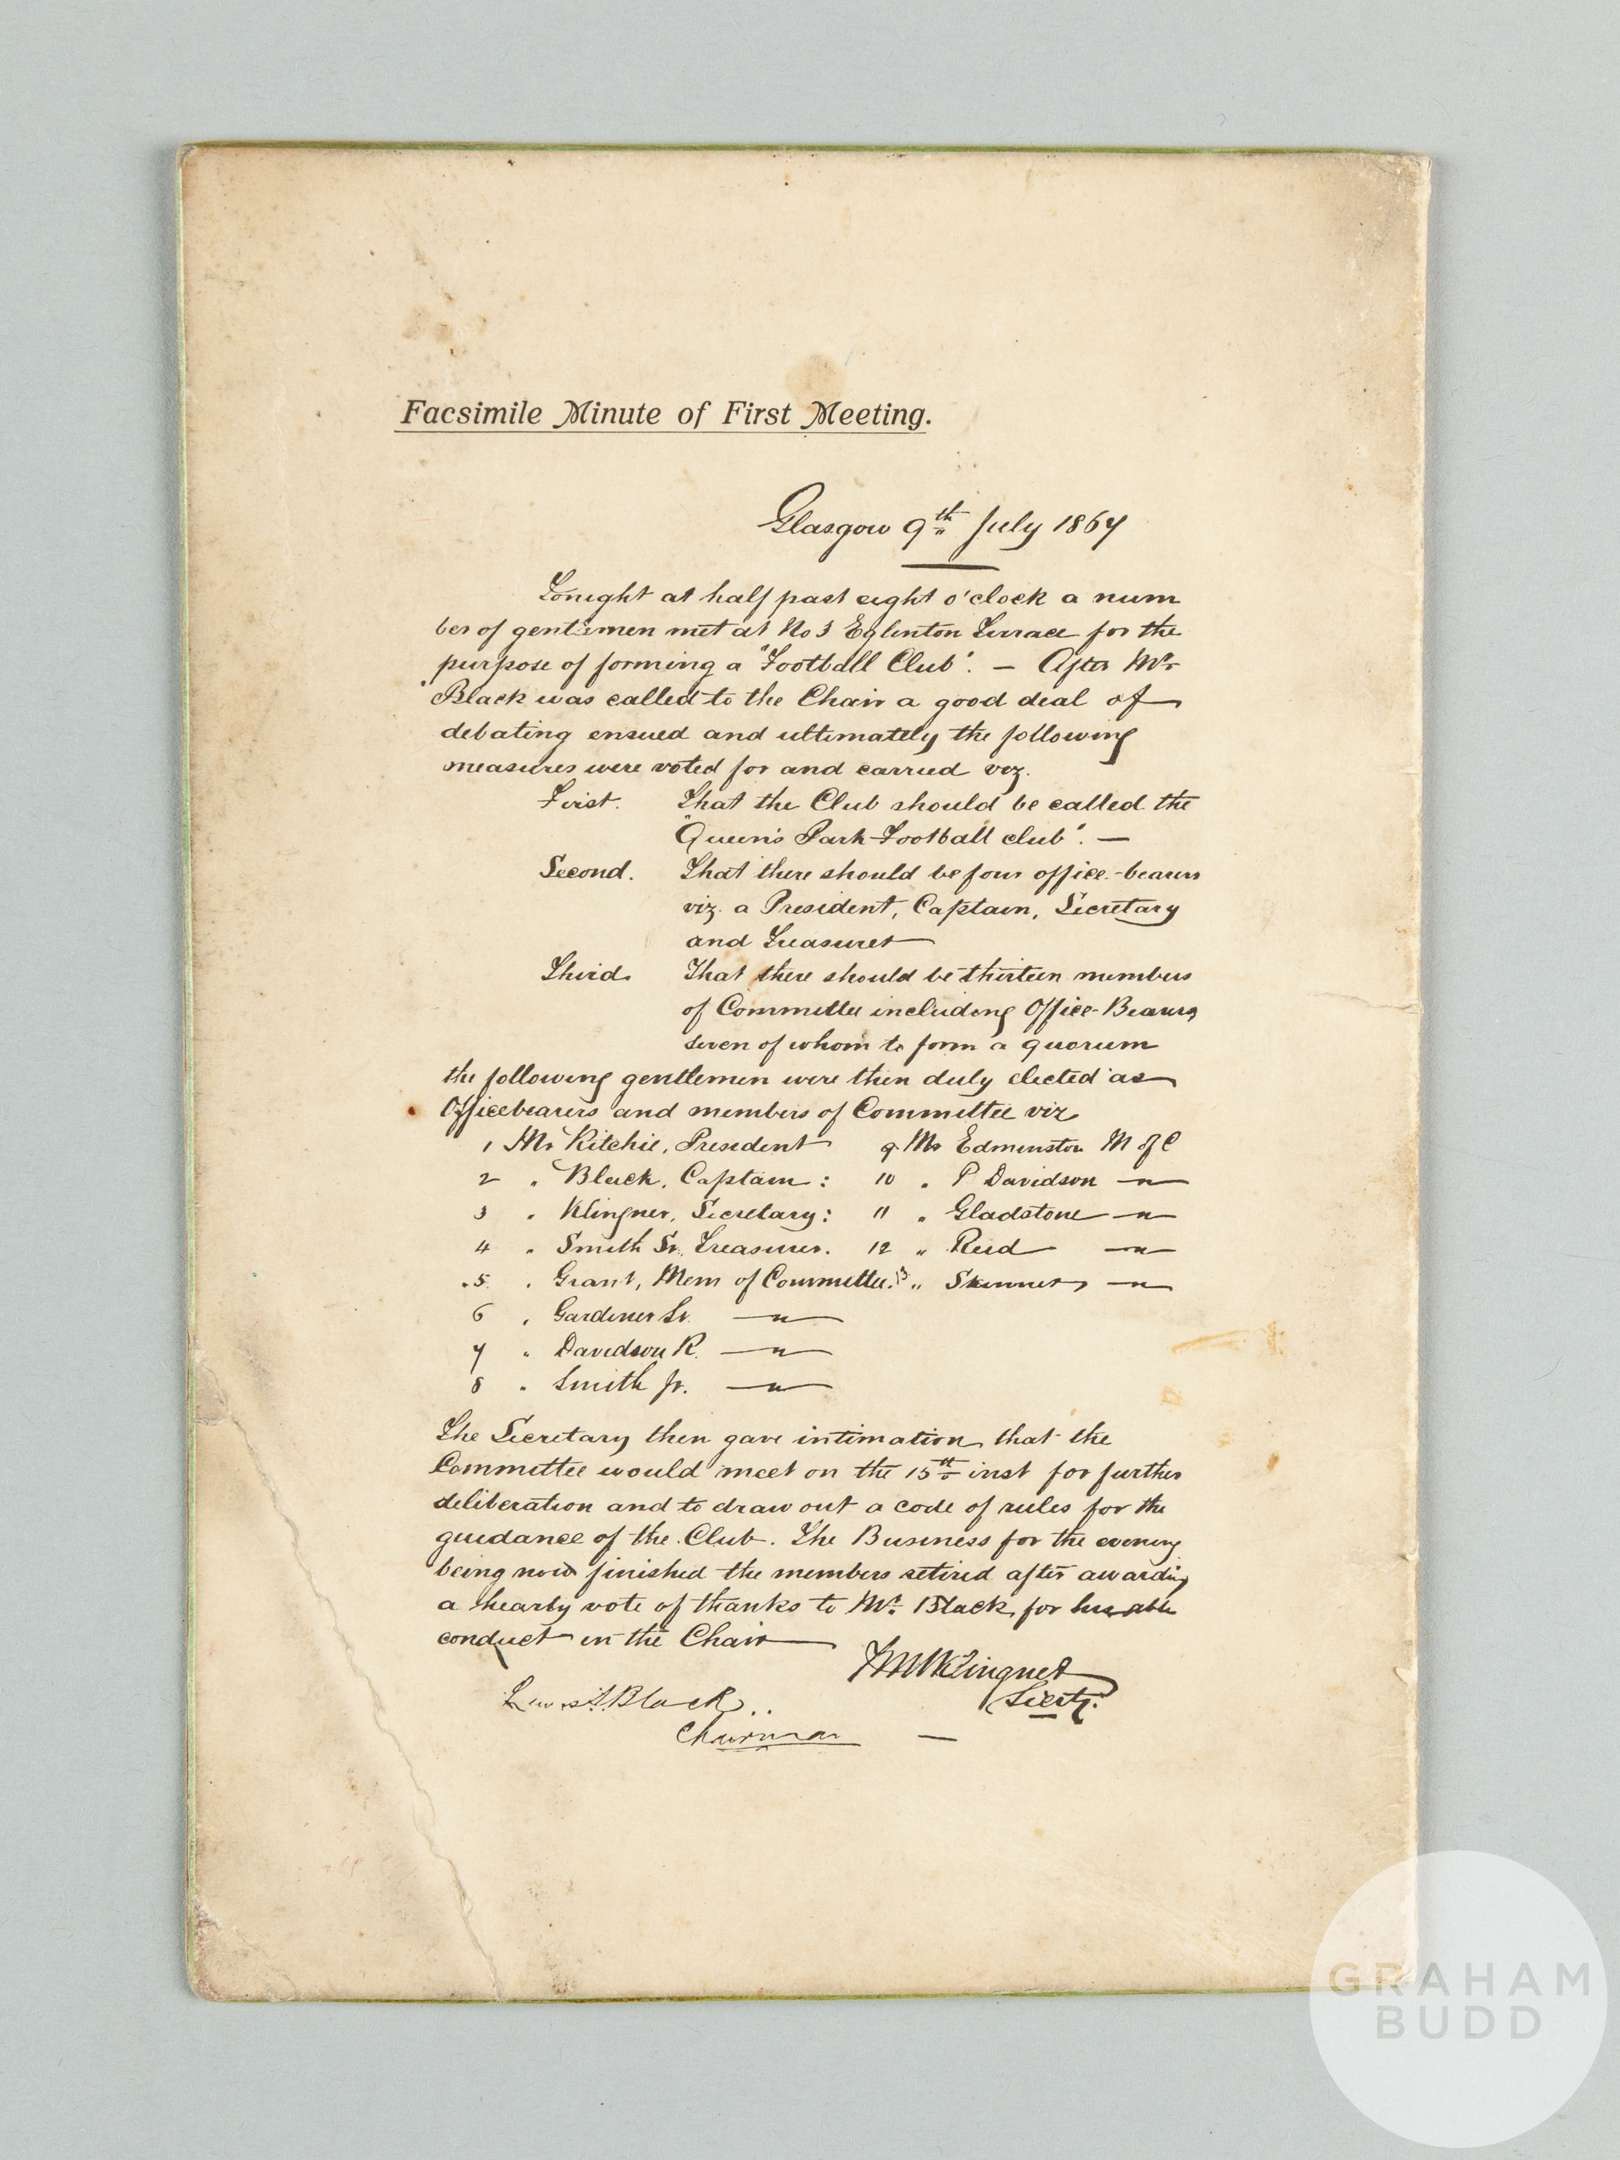 Facsimile Minute of First Meeting.
Glasgow 9th July 1867
Tonight at half past eight o'clock a num
ber of gentlemen met at No 3 Eglinton Terrace for the
purpose of forming a "Football Club". — After Mr
Black was called to the Chair a good deal of
debating ensued and ultimately the following
measures were voted for and carried viz.
First. That the Club should be called the
"Queen's Park Football club". —
Second. That there should be four office-bearers
viz. a President, Captain, Secretary
and Treasurer
Third That there should be thirteen members
of Committee including Office-Bearers,
seven of whom to form a quorum
the following gentlemen were then duly elected as
Officebearers and members of Committee viz
1 Mr Ritchie, President 9 Mr Edmenston M of C
2 " Black, Captain: 10 " P Davidson — " —
3 " Klingner, Secretary: 11 " Gladstone — " —
4 " Smith Sr. Treasurer. 12 " Reid — " —
5 " Grant, Mem of Committee. 13 " Skinner, — " —
6 " Gardiner Sr. — " —
7 " Davidson R. — " —
8 " Smith Jr. — " —
The Secretary then gave intimation that the
Committee would meet on the 15th inst for further
deliberation and to draw out a code of rules for the
guidance of the Club. The Business for the evening
being now finished the members retired after awarding
a hearty vote of thanks to Mr. Black for his able
conduct in the Chair
Klingner
Secty.
Lewis S. Black..
Chairman —
GRAHAM
BUDD